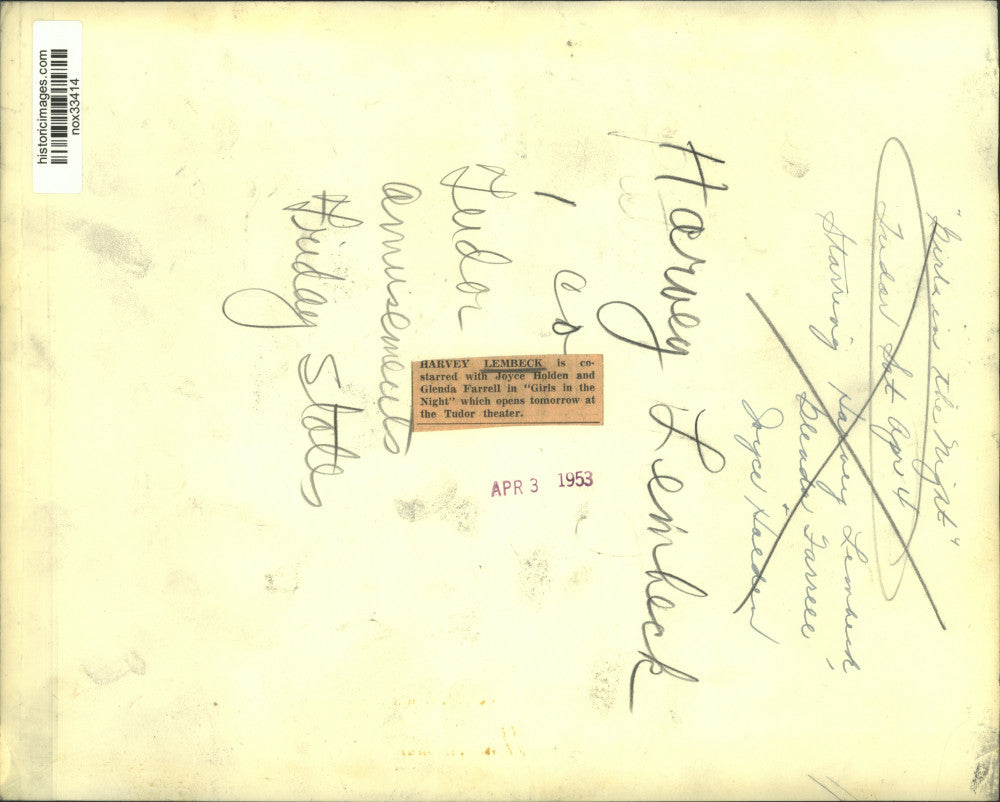 historicimages.com
nox33414
"Girls in the Night"
Tudor Sat Apr 4
Starring Harvey Lembeck
Glenda Farrell,
Joyce Holden
Harvey Lembeck
1 co
Tudor
amusements
Friday States
HARVEY LEMBECK is co-
starred with Joyce Holden and
Glenda Farrell in "Girls in the
Night" which opens tomorrow at
the Tudor theater.
APR 3 1953